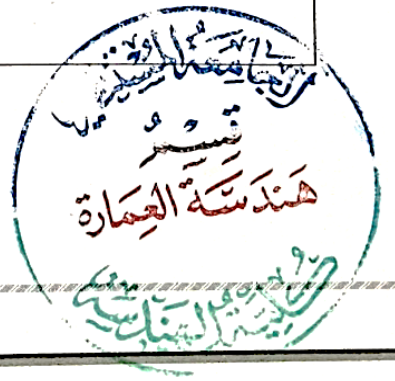 الجامعة المستنصرية
قِسْمُ
هَنْدَسَةُ العِمَارَة
كلية الهندسة